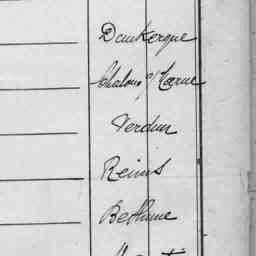 Dunkerque
Chalons s/ Marne
Verdun
Reims
Bethune